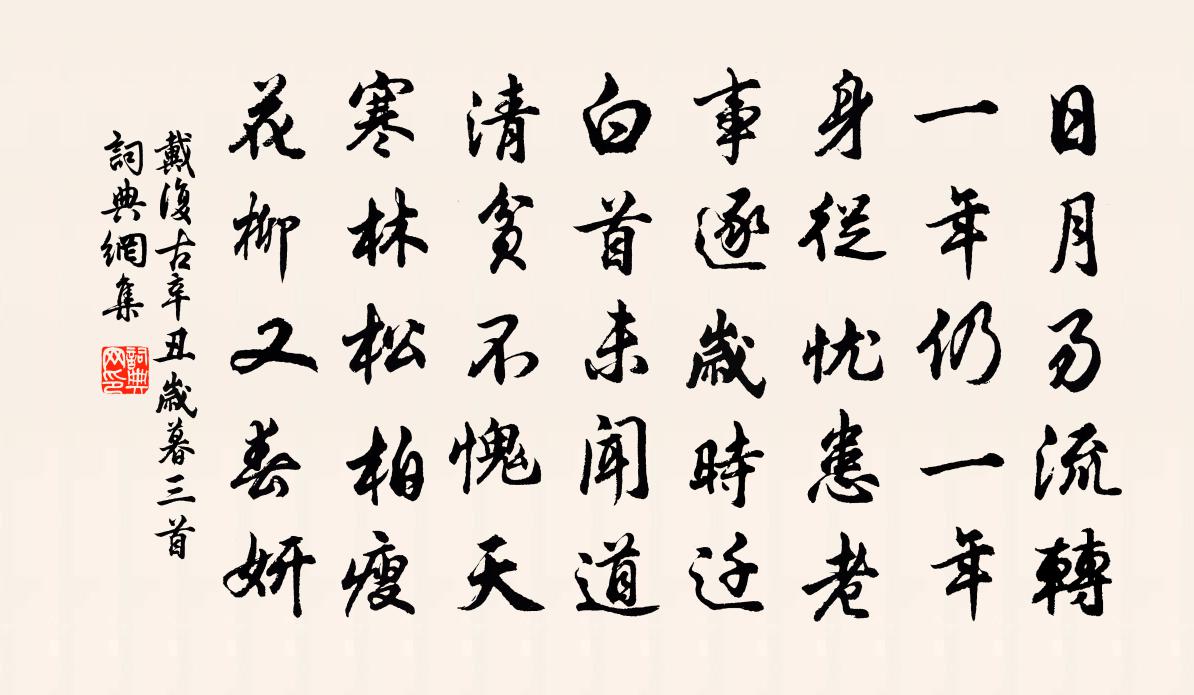 日月互流轉
一年仍一年
身從忧患老
事逐歲時迁
白首未聞道
清貧不愧天
寒林松柏瘦
花柳又春妍
戴復古辛丑歲暮三首
詞典網集
詞典网印